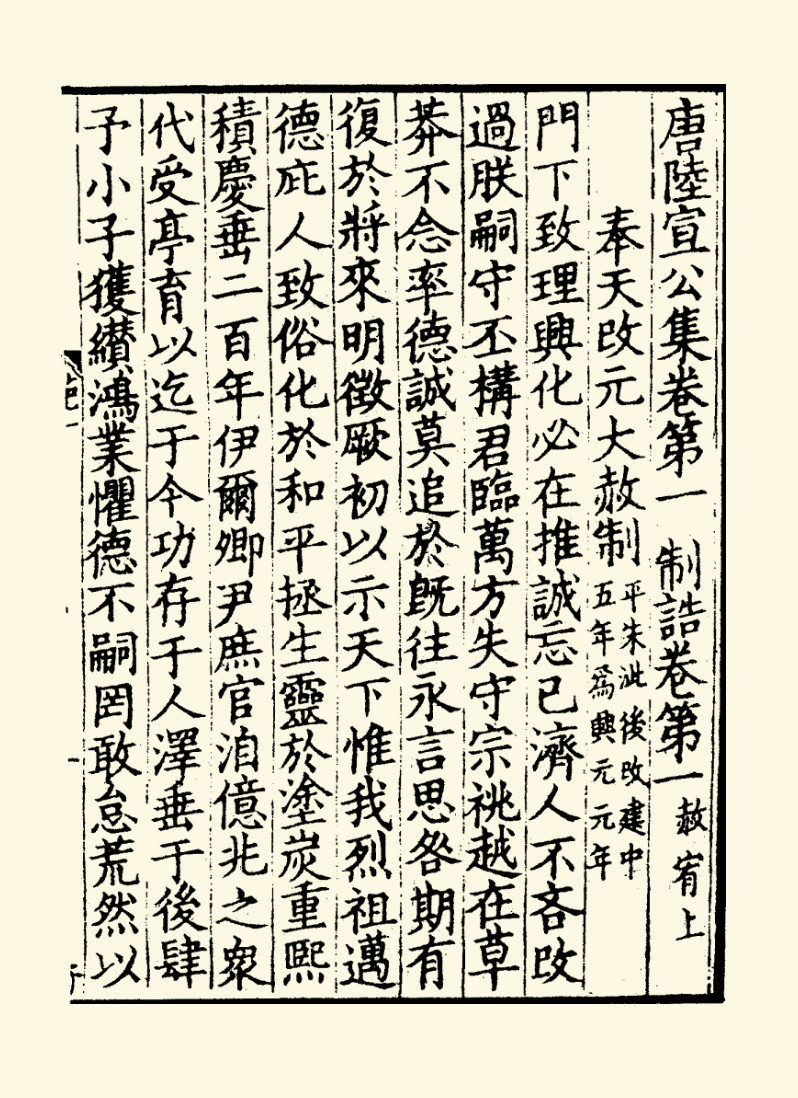 唐陸宣公集卷第一 制誥卷第一 赦宥上
奉天改元大赦制 平朱泚後改建中五年爲興元元年
門下致理興化必在推誠忘己濟人不吝改
過朕嗣守丕構君臨萬方失守宗祧越在草
莽不念率德誠莫追於旣往永言思咎期有
復於將來明徵厥初以示天下惟我烈祖邁
德庇人致俗化於和平拯生靈於塗炭重熙
積慶垂二百年伊爾卿尹庶官洎億兆之衆
代受亭育以迄于今功存于人澤垂于後肆
予小子獲纘鴻業懼德不嗣罔敢怠荒然以